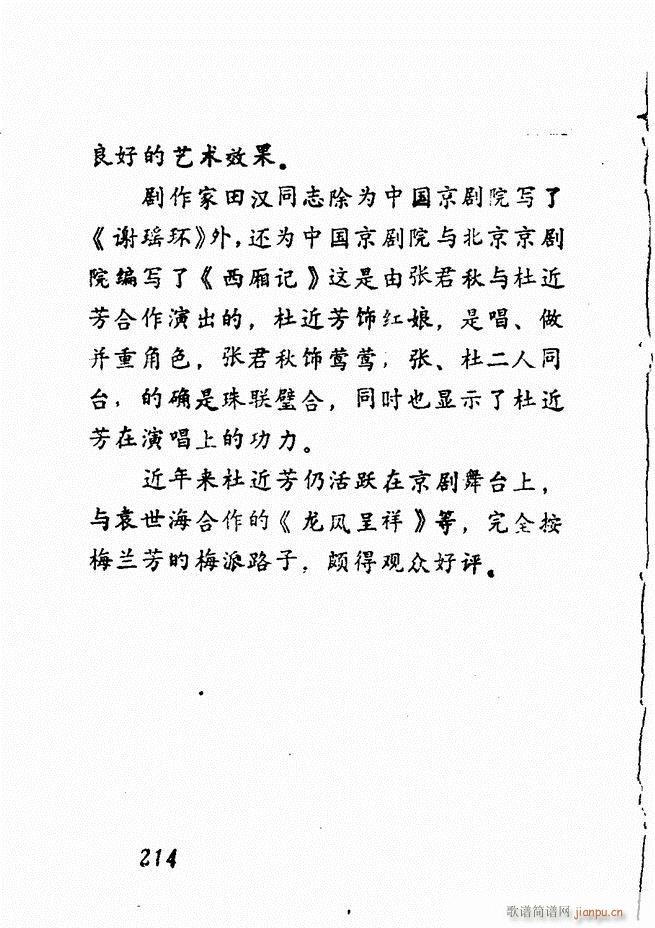 良好的艺术效果。
剧作家田汉同志除为中国京剧院写了
《谢瑶环》外,还为中国京剧院与北京京剧
院编写了《西厢记》这是由张君秋与杜近
芳合作演出的，杜近芳饰红娘，是唱、做
并重角色，张君秋饰莺莺，张、杜二人同
台，的确是珠联璧合，同时也显示了杜近
芳在演唱上的功力。
近年来杜近芳仍活跃在京剧舞台上，
与袁世海合作的《龙凤呈祥》等，完全按
梅兰芳的梅派路子，颇得观众好评。
214
歌谱简谱网 jianpu.cn